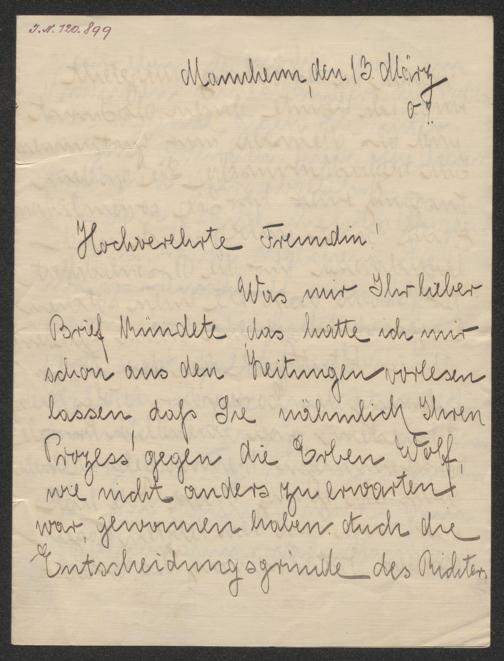 I.N. 120.899
Mannheim, den 13. März
Hochverehrte Freundin!
Was mir Ihr lieber
Brief kündete das hatte ich mir
schon aus den Zeitungen vorlesen
lassen daß Sie nähmlich Ihren
Prozess gegen die Erben Wolf,
wie nicht anders zu erwarten
war, gewonnen haben. Auch die
Entscheidungsgründe des Richters